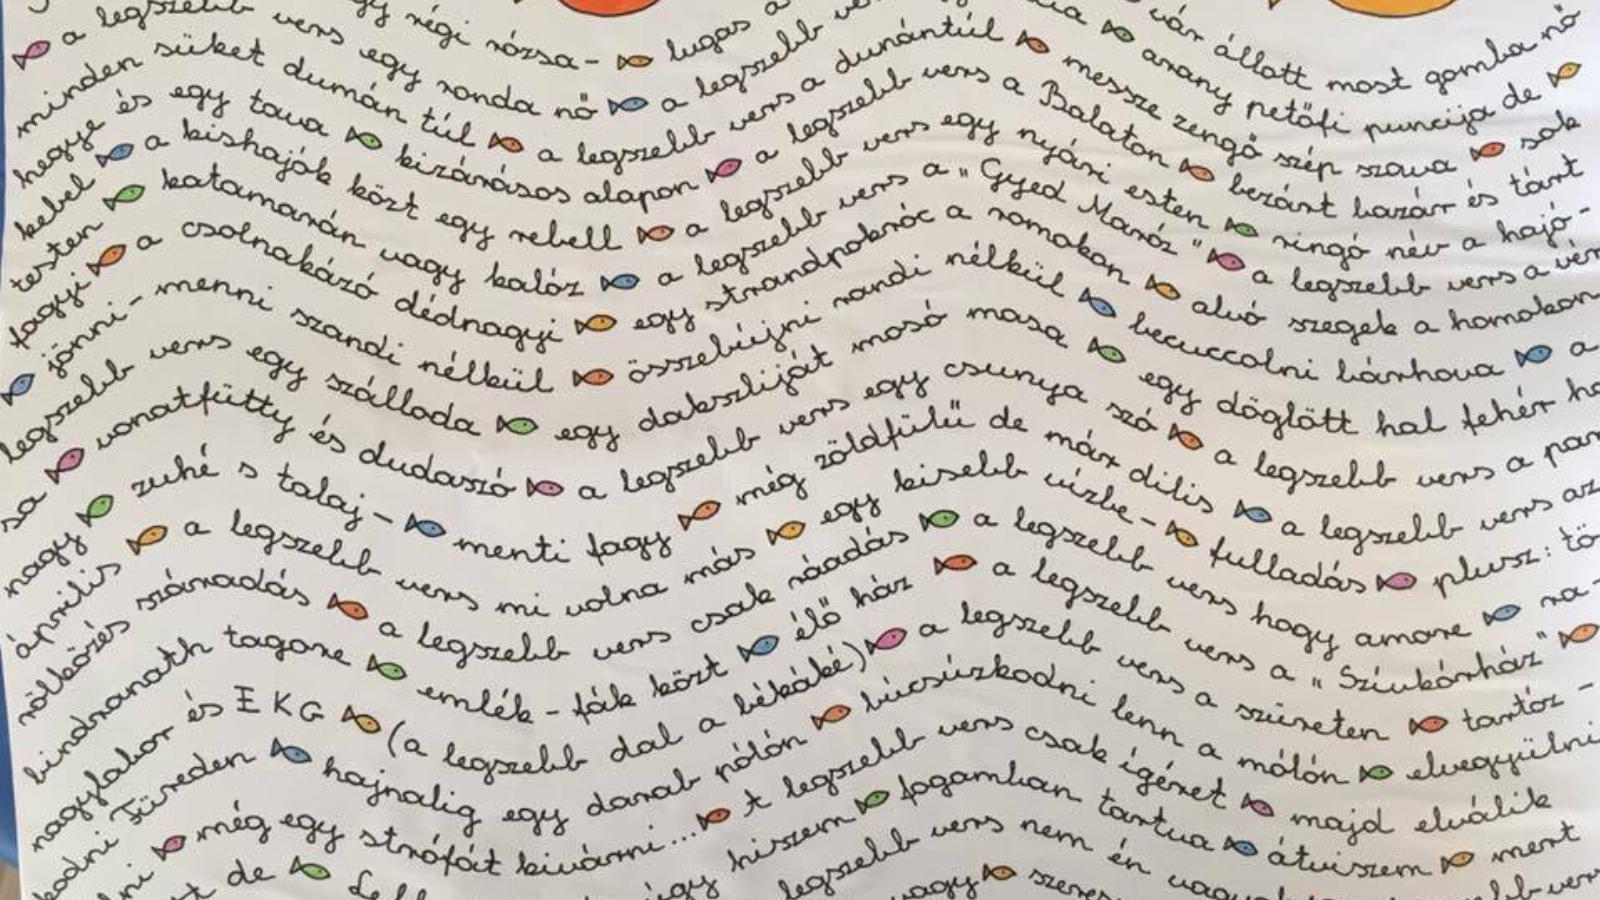 gy régi rózsa- lugas a vár állott most gomba nő
a legszebb vers egy ronda nő a legszebb arany petőfi puncija de
minden süket dumán túl a legszebb vers a dunántúl messze zengő szép szava sok
hegye és egy tava kizárásos alapon a legszebb vers a Balaton bezárt bazár és tárt
kebel a kishajók közt egy rebell a legszebb vers egy nyári esten ringó név a hajó-
testen katamarán vagy kalóz a legszebb vers a „Gyed Maróz" a legszebb vers a vén
fagyi a csolnakázó dédnagyi egy strandpokróc a romokon alvó szegek a homokon
jönni-menni szandi nélkül összebújni randi nélkül becuccolni bárhova a
legszebb vers egy szálloda egy dakszliját mosó masa egy döglött hal fehér ha
sa vonatfütty és dudaszó a legszebb vers egy csunya szó a legszebb vers a par
nagy zuhé s talaj-menti fagy még zöldfülű de már dilis a legszebb vers az
április a legszebb vers mi volna más egy kisebb vízbe-fulladás plusz: tö-
rölközés száradás a legszebb vers csak ráadás a legszebb vers hogy amore ra-
bindranath tagore emlék-fák közt élő ház a legszebb vers a „Szívkórház"
nagylabor és EKG (a legszebb dal a békáké) a legszebb vers a szüreten tartóz-
kodni Füreden hajnalig egy darab rólón búcsúzkodni lenn a mólón elvegyülni
lni még egy strófát kivárni... A legszebb vers csak ígéret majd elválik
t de úgy hiszem fogamban tartva átviszem mert
legszebb vers nem én
vagy